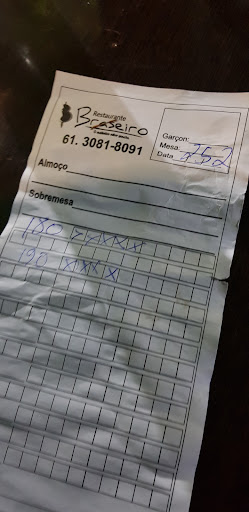 Restaurante
Braseiro
61. 3081-8091
Garçon:
Mesa: 252
Data
Almoço
Sobremesa
180 X X X X X
190 X X X X